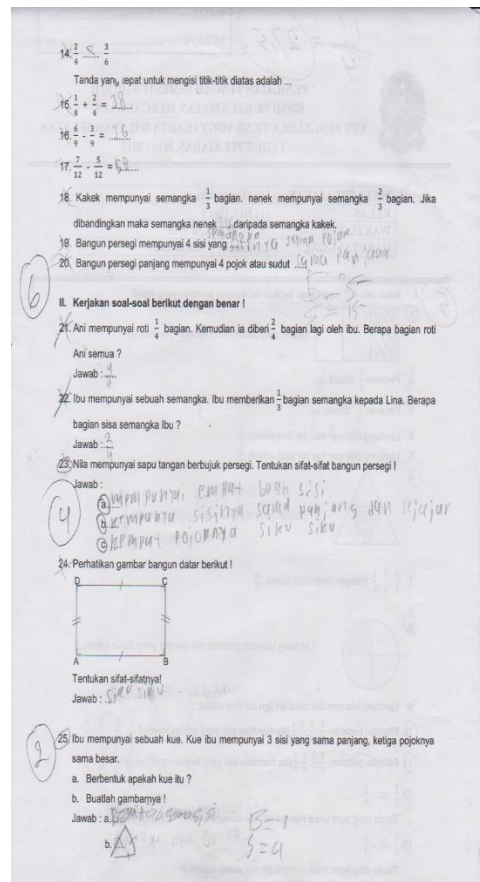 14. 2/4 ...<... 3/6
Tanda yang tepat untuk mengisi titik-titik diatas adalah ...
15. 1/4 + 2/4 =
16. 6/9 - 3/9 = ...6
17. 7/12 - 5/12 =
18. Kakek mempunyai semangka 1/3 bagian. nenek mempunyai semangka 2/3 bagian. Jika
dibandingkan maka semangka nenek .... daripada semangka kakek.
semangka
19. Bangun persegi mempunyai 4 sisi yang sisinya sama pojok
20. Bangun persegi panjang mempunyai 4 pojok atau sudut ... sama panjang
6
B = 5
S = 15
II. Kerjakan soal-soal berikut dengan benar !
21. Ani mempunyai roti 1/4 bagian. Kemudian ia diberi 2/4 bagian lagi oleh ibu. Berapa bagian roti
Ani semua ?
Jawab : 4/4
22. Ibu mempunyai sebuah semangka. Ibu memberikan 1/3 bagian semangka kepada Lina. Berapa
bagian sisa semangka Ibu ?
Jawab : 2/4
23. Nila mempunyai sapu tangan berbujuk persegi. Tentukan sifat-sifat bangun persegi !
Jawab :
4
a. mempunyai empat buah sisi
b. kempunya sisinya sama panjang dan sejajar
c. kempat pojoknya siku siku
24. Perhatikan gambar bangun datar berikut !
D C
A B
Tentukan sifat-sifatnya!
Jawab : siku siku
2
25. Ibu mempunyai sebuah kue. Kue ibu mempunyai 3 sisi yang sama panjang, ketiga pojoknya
sama besar.
a. Berbentuk apakah kue itu ?
b. Buatlah gambarnya !
Jawab : a.
B = 1
b.
S = 4